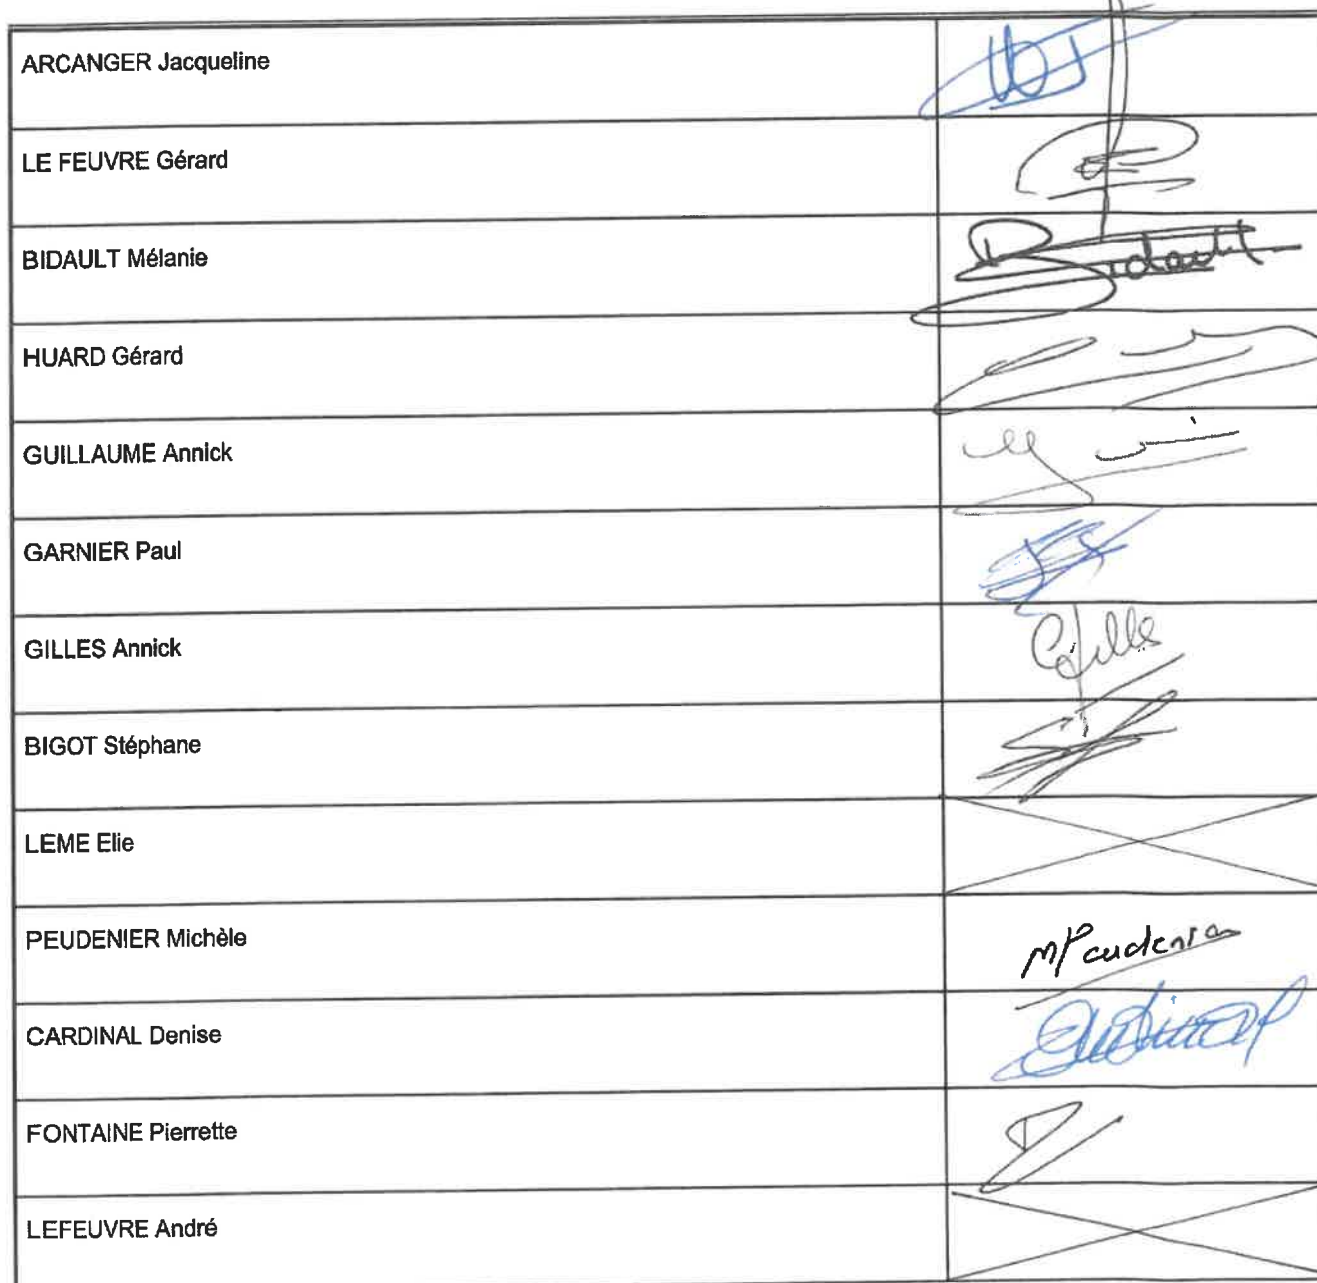 ARCANGER Jacqueline
LE FEUVRE Gérard
BIDAULT Mélanie
Bidault
HUARD Gérard
GUILLAUME Annick
GARNIER Paul
GILLES Annick
Gilles
BIGOT Stéphane
LEME Elie
PEUDENIER Michèle
CARDINAL Denise
FONTAINE Pierrette
LEFEUVRE André